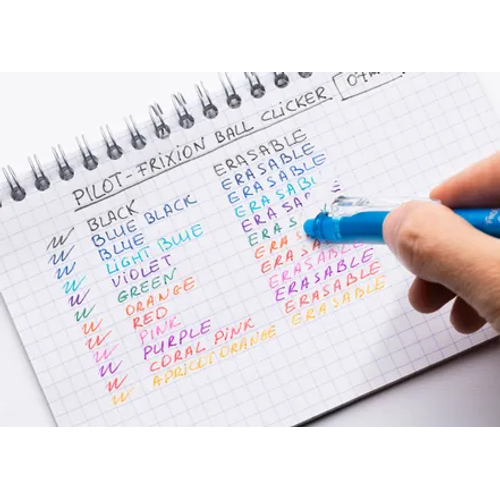 PILOT-FRIXION BALL CLICKER
BLACK ERASABLE
BLUE BLACK ERASABLE
BLUE ERASABLE
LIGHT BLUE ERASABL
VIOLET ERASA
GREEN ERAS
ORANGE ERA
RED ERASA
PINK ERASABLE
PURPLE ERASABLE
CORAL PINK ERASABLE
APRICOT ORANGE ERASABLE